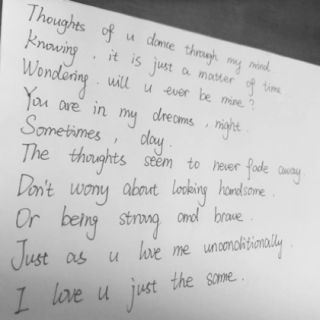 Thoughts of u dance through my mind
Knowing, it is just a matter of time
Wondering. will u ever be mine?
You are in my dreams, night.
Sometimes, day.
The thoughts seem to never fade away.
Don't worry about looking handsome.
Or being strong and brave.
Just as u love me unconditionally.
I love u just the same.